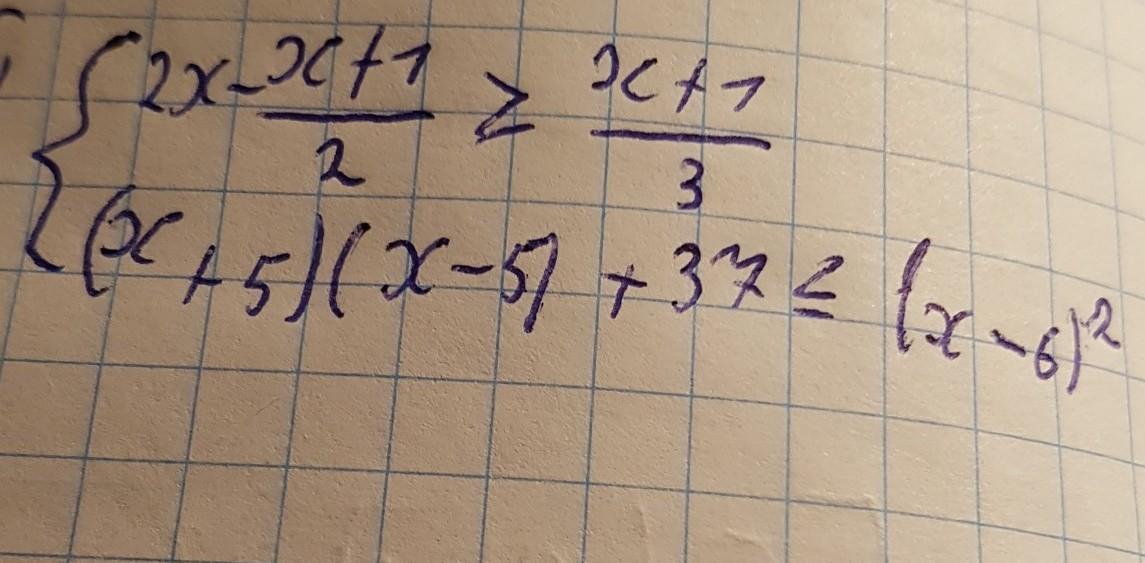 { 2x - \frac{x+1}{2} ≥ \frac{x+1}{3}
(x+5)(x-5) + 37 ≤ (x-6)^2